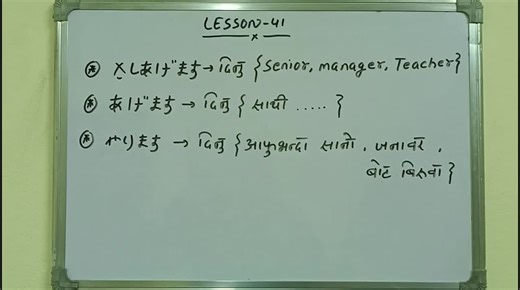 LESSON-41
× 
* さしあげます → दिनु {Senior, manager, Teacher}
* あげます → दिनु {साथी .....}
* やります → दिनु {आफुभन्दा सानो, जनावर,
बोट बिरुवा}